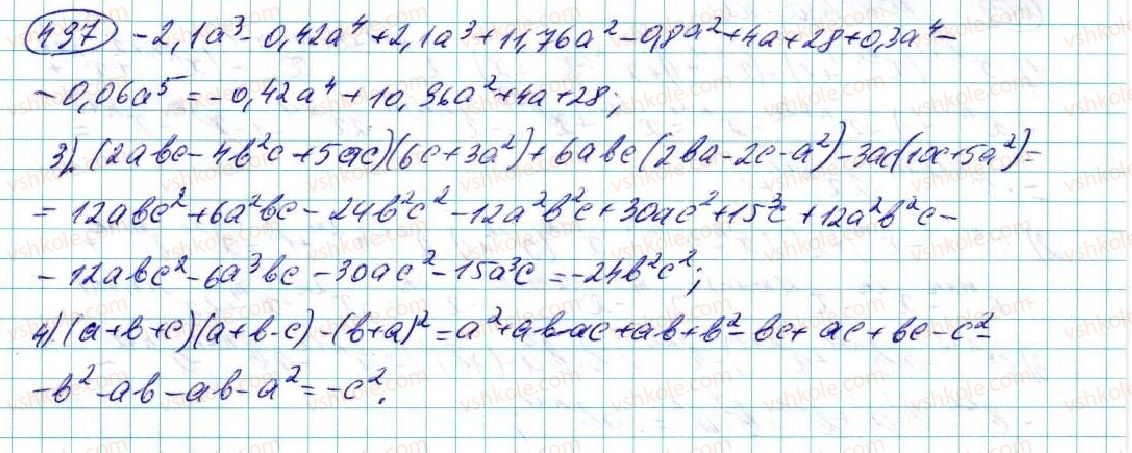 497 -2,1a³-0,42a⁴+2,1a³+11,76a²-0,8a²+4a+28+0,3a⁴-
-0,06a⁵=-0,42a⁴+10,96a²+4a+28;
3) (2abc-4b²c+5ac)(6c+3a²)+6abc(2ba-2c-a²)-3ac(10c+5a²)=
=12abc²+6a²bc-24b²c²-12a²b²c+30ac²+15³c+12a²b²c-
-12abc²-6a³bc-30ac²-15a³c=-24b²c²;
4) (a+b+c)(a+b-c)-(b+a)²=a²+ab-ac+ab+b²-bc+ac+bc-c²-
-b²-ab-ab-a²=-c².